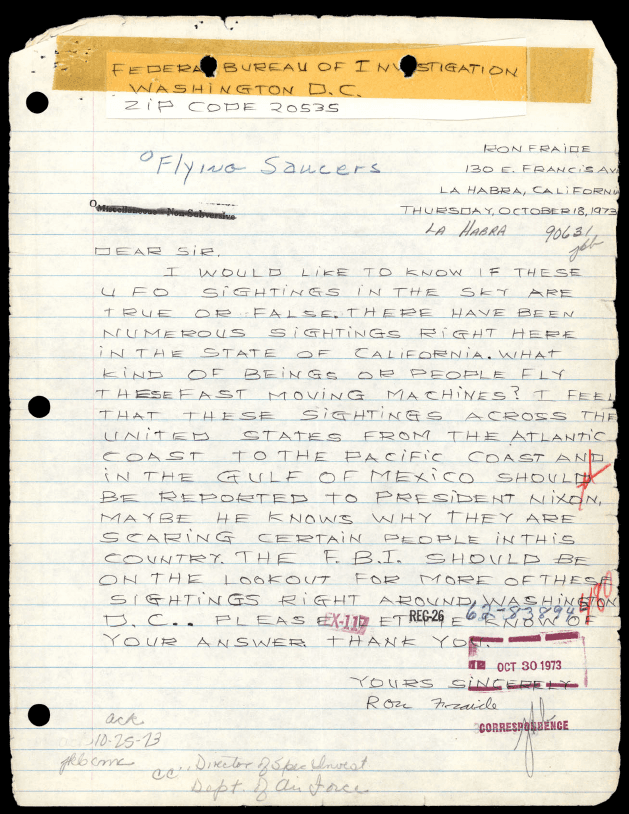 FEDERAL BUREAU OF INVESTIGATION
WASHINGTON D.C.
ZIP CODE 20535
RON FRAIDE
130 E. FRANCIS AV
LA HABRA, CALIFORNI
THURSDAY, OCTOBER 18, 1973
LA HABRA 90631
Flying Saucers
Miscellaneous - Non Subversive
DEAR SIR,
I WOULD LIKE TO KNOW IF THESE
UFO SIGHTINGS IN THE SKY ARE
TRUE OR FALSE. THERE HAVE BEEN
NUMEROUS SIGHTINGS RIGHT HERE
IN THE STATE OF CALIFORNIA. WHAT
KIND OF BEINGS OR PEOPLE FLY
THESE FAST MOVING MACHINES? I FEEL
THAT THESE SIGHTINGS ACROSS THE
UNITED STATES FROM THE ATLANTIC
COAST TO THE PACIFIC COAST AND
IN THE GULF OF MEXICO SHOULD
BE REPORTED TO PRESIDENT NIXON,
MAYBE HE KNOWS WHY THEY ARE
SCARING CERTAIN PEOPLE IN THIS
COUNTRY. THE F.B.I. SHOULD BE
ON THE LOOKOUT FOR MORE OF THESE
SIGHTINGS RIGHT AROUND WASHINGTON
D.C.. PLEASE LET ME KNOW OF
EX-117 REC-26 62-83894
YOUR ANSWER. THANK YOU.
OCT 30 1973
YOURS SINCERELY
Ron Fraide
CORRESPONDENCE
ack
10-25-73
cc: Director of Spec Invest
Dept. of Air Force